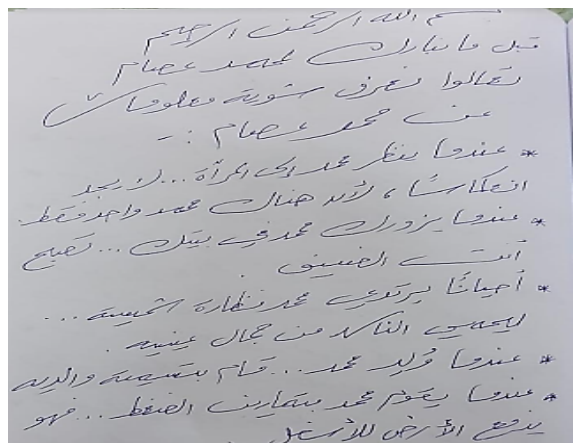 بسم الله الرحمن الرحيم
قبل ما نبارك لمحمد عصام
تعالوا نعرف شوية معلومات
عن محمد عصام :-
* عندما ينظر محمد إلى المرآة... لا يجد
انعكاسًا، لأنه هناك محمد واحد فقط.
* عندما يزورك محمد في بيتك... تصبح
أنت الضيف.
* أحيانًا يرتدي محمد نظارة شمسية...
ليحمي الناس من جمال عينيه.
* عندما وُلِد محمد... قام بتسمية والديه
* عندما يقوم محمد بتمارين الضغط... فهو
يدفع الأرض للأسفل.